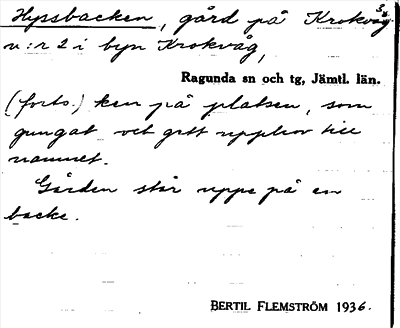 Hyssbacken, gård på Krokvåg
n:r 2 i byn Krokvåg,
Ragunda sn och tg, Jämtl. län.
(forts.) ken på platsen, som
gungat och gett upphov till
namnet.
Gården står uppe på en
backe.
BERTIL FLEMSTRÖM 1936.